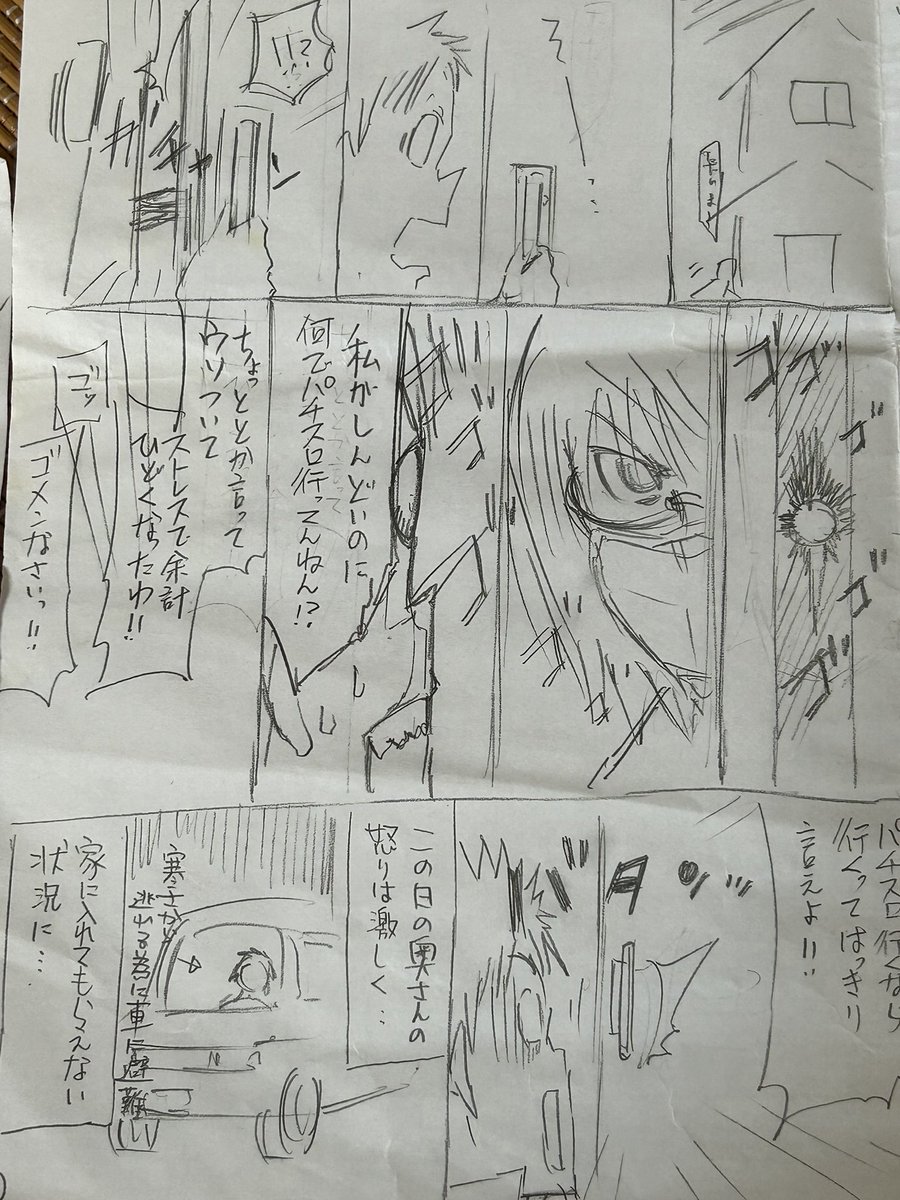 !!?
ガチャン
ゴゴゴゴゴ
私がしんどいのに
何でパチスロ行ってんねん!?
ちょっととか言って
ウソついて
ストレスで余計
ひどくなったわ!!
ゴッ
ゴメンなさいっ!!
パチスロ行くなら
行くってはっきり
言えよ!!
この日の奥さんの
怒りは激しく…
寒さから
逃れる為に車に避難し
家に入れてもらえない
状況に…